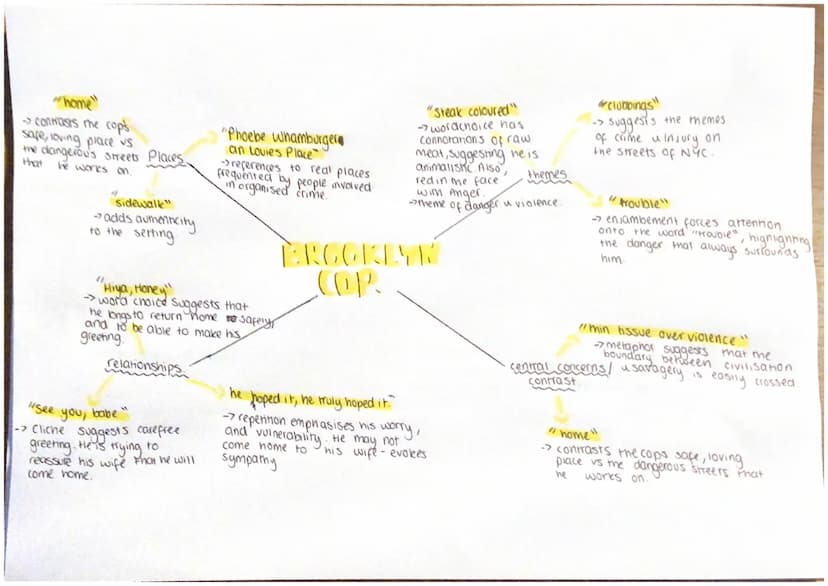 "home"
→ contrasts the cop's
safe, loving place vs
the dangerous streets
that he works on.
Places
"Phoebe Whamburger
an Louies Place"
→ references to real places
frequented by people involved
in organised crime.
"sidewalk"
→ adds authenticity
to the setting.
"Steak coloured"
→ word choice has
connotations of raw
meat, suggesting he is
animalistic. Also,
red in the face
with anger.
→ theme of danger & violence.
themes
"clubbings"
→ suggests the themes
of crime & injury on
the streets of NYC.
"trouble"
→ enjambement forces attention
onto the word "trouble", highlighting
the danger that always surrounds
him.
BROOKLYN
COP.
"Hiya, Honey"
→ word choice suggests that
he longs to return home safely,
and to be able to make his
greeting.
relationships
"See you, babe"
→ Cliche suggests carefree
greeting. He is trying to
reassure his wife that he will
come home.
he hoped it, he truly hoped it"
→ repetition emphasises his worry,
and vulnerability. He may not
come home to his wife - evokes
sympathy
central concerns/
contrast
"thin tissue over violence"
→ metaphor suggests that the
boundary between civilisation
& savagery is easily crossed
"home"
→ contrasts the cops safe, loving
place vs the dangerous streets that
he works on.